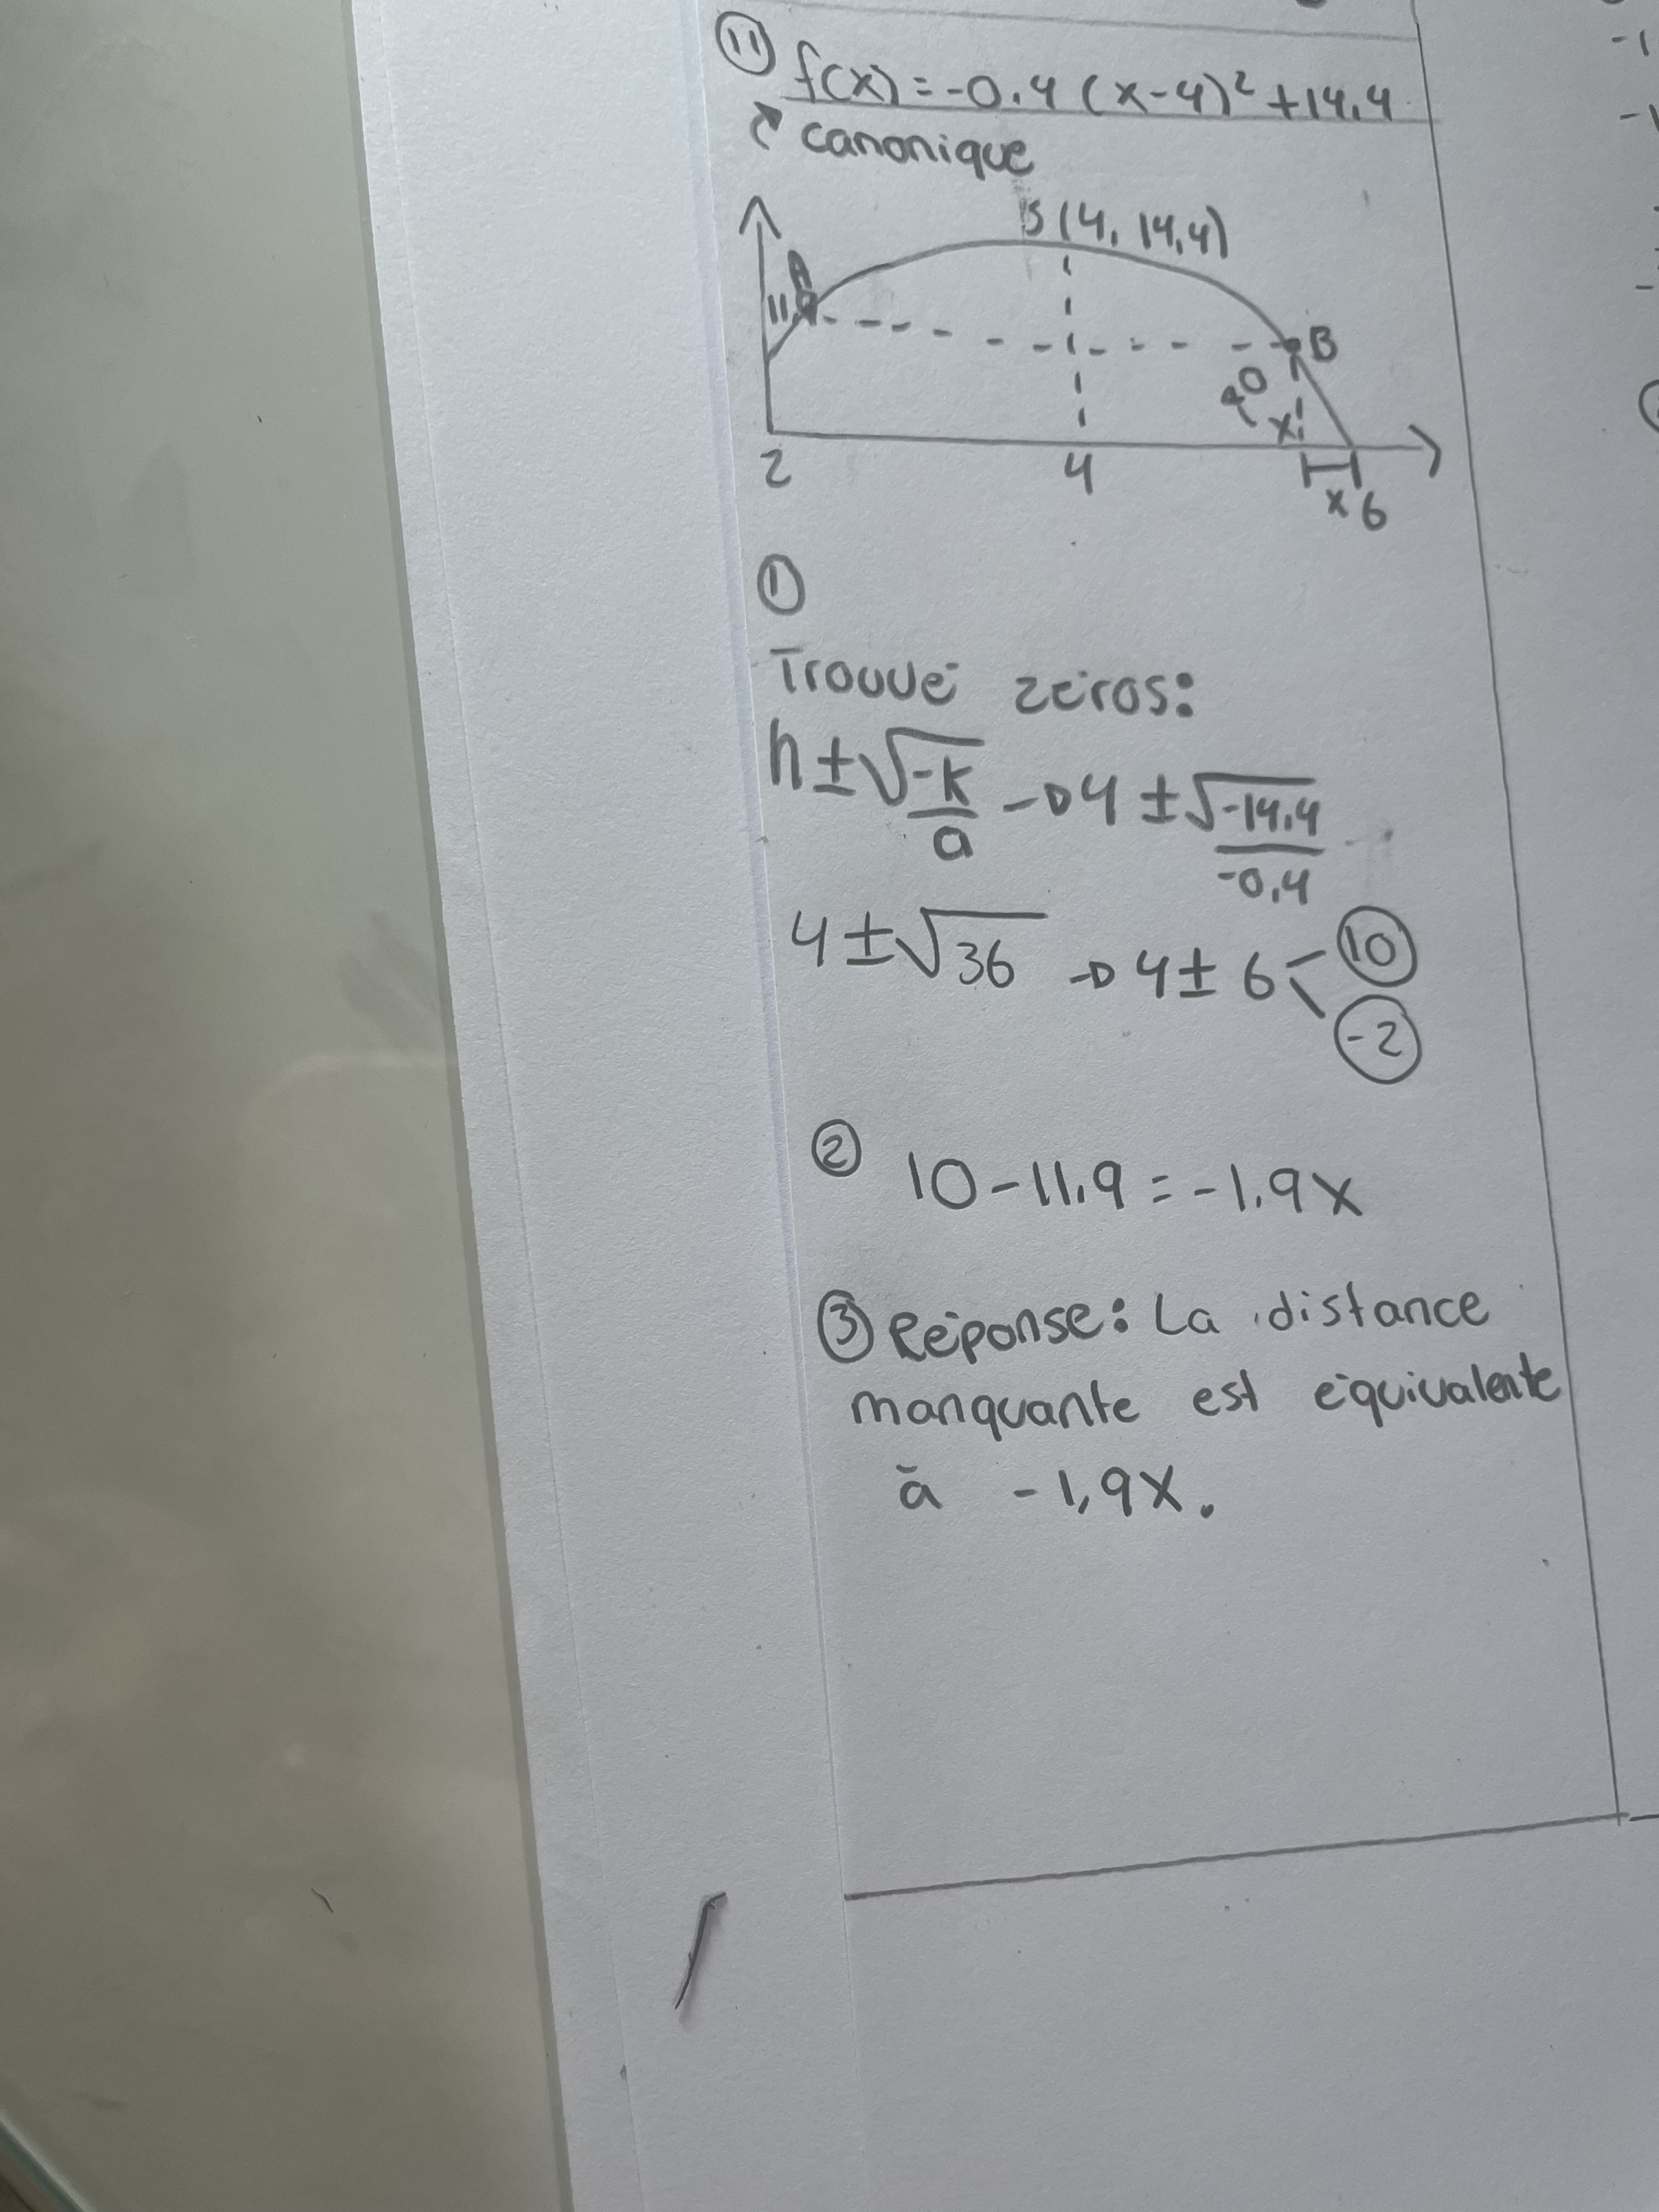 11 f(x) = -0.4 (x-4)² +14,4
canonique
S(4, 14,4)
A
11,9
B
x
2 4 x 6
①
Trouvé zéros:
h±√-k/a → 4 ±√-14,4/-0,4
4±√36 → 4± 6 < 10
-2
② 10-11,9 = -1,9x
③ Réponse: La distance
manquante est équivalente
à -1,9x.